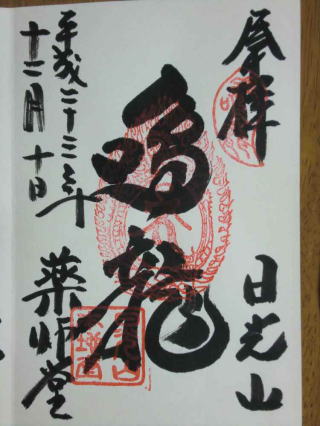 奉拝
日光山
鳴龍
薬師堂
平成二十三年
十二月十日